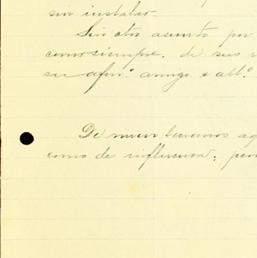 sin instalar.
Sin otro asunto por
como siempre, de sus
su afmo. amigo
De nuevo tenemos aq
como de influenza, per